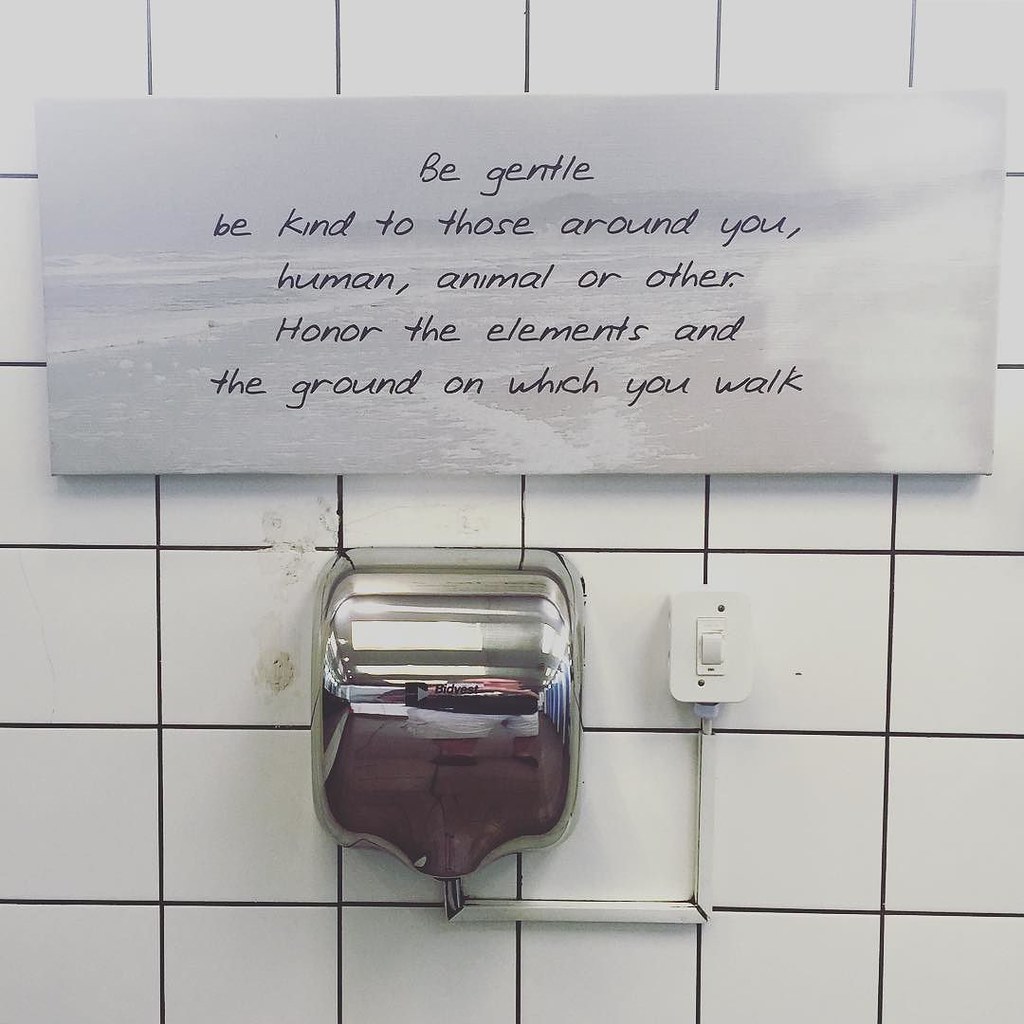 Be gentle
be kind to those around you,
human, animal or other.
Honor the elements and
the ground on which you walk
Bidvest